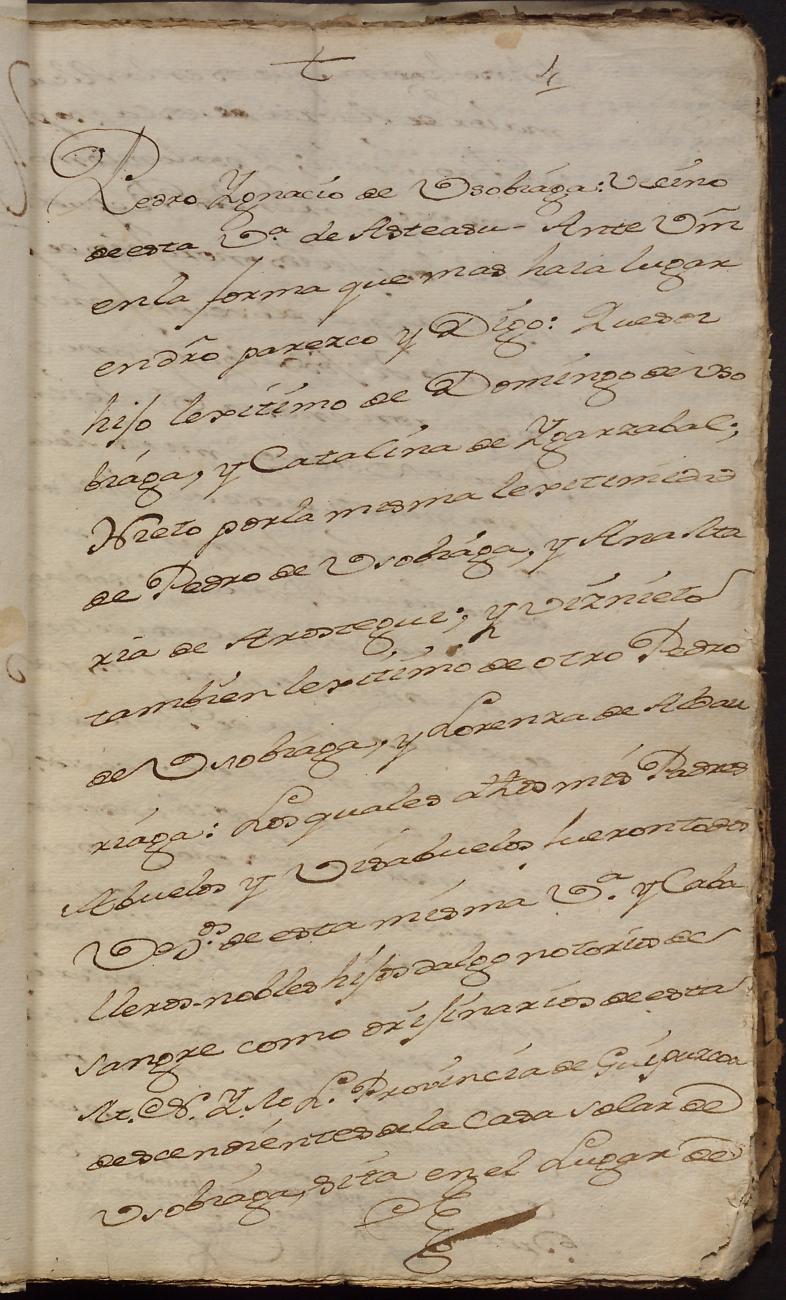 † 4
Pedro Ygnacio de Vsobiaga: Vecino
de esta V.ª de Asteasu - Ante Vm̃
en la forma que mas haia lugar
en dr̃o parezco y Digo: Que soi
hijo lexitimo de Domingo de Vso
biaga, y Catalina de Ygarzabal;
Nieto por la misma lexitimidad
de Pedro de Vsobiaga, y Ana Ma
ria de Arostegui; y Viznieto
tambien lexitimo de otro Pedro
de Vsobiaga, y Lorenza de Abau
riaga: Los quales dhos mis Padres
Abuelos y Visabuelos fueron todos
Vez.ºˢ de esta misma V.ª y Caba
lleros nobles hijos dalgo notorios de
sangre como orijinarios de esta
M. N. Y M. L. Provincia de Guipuzcoa
descendientes de la Casa solar de
Vsobiaga, sita en el Lugar de